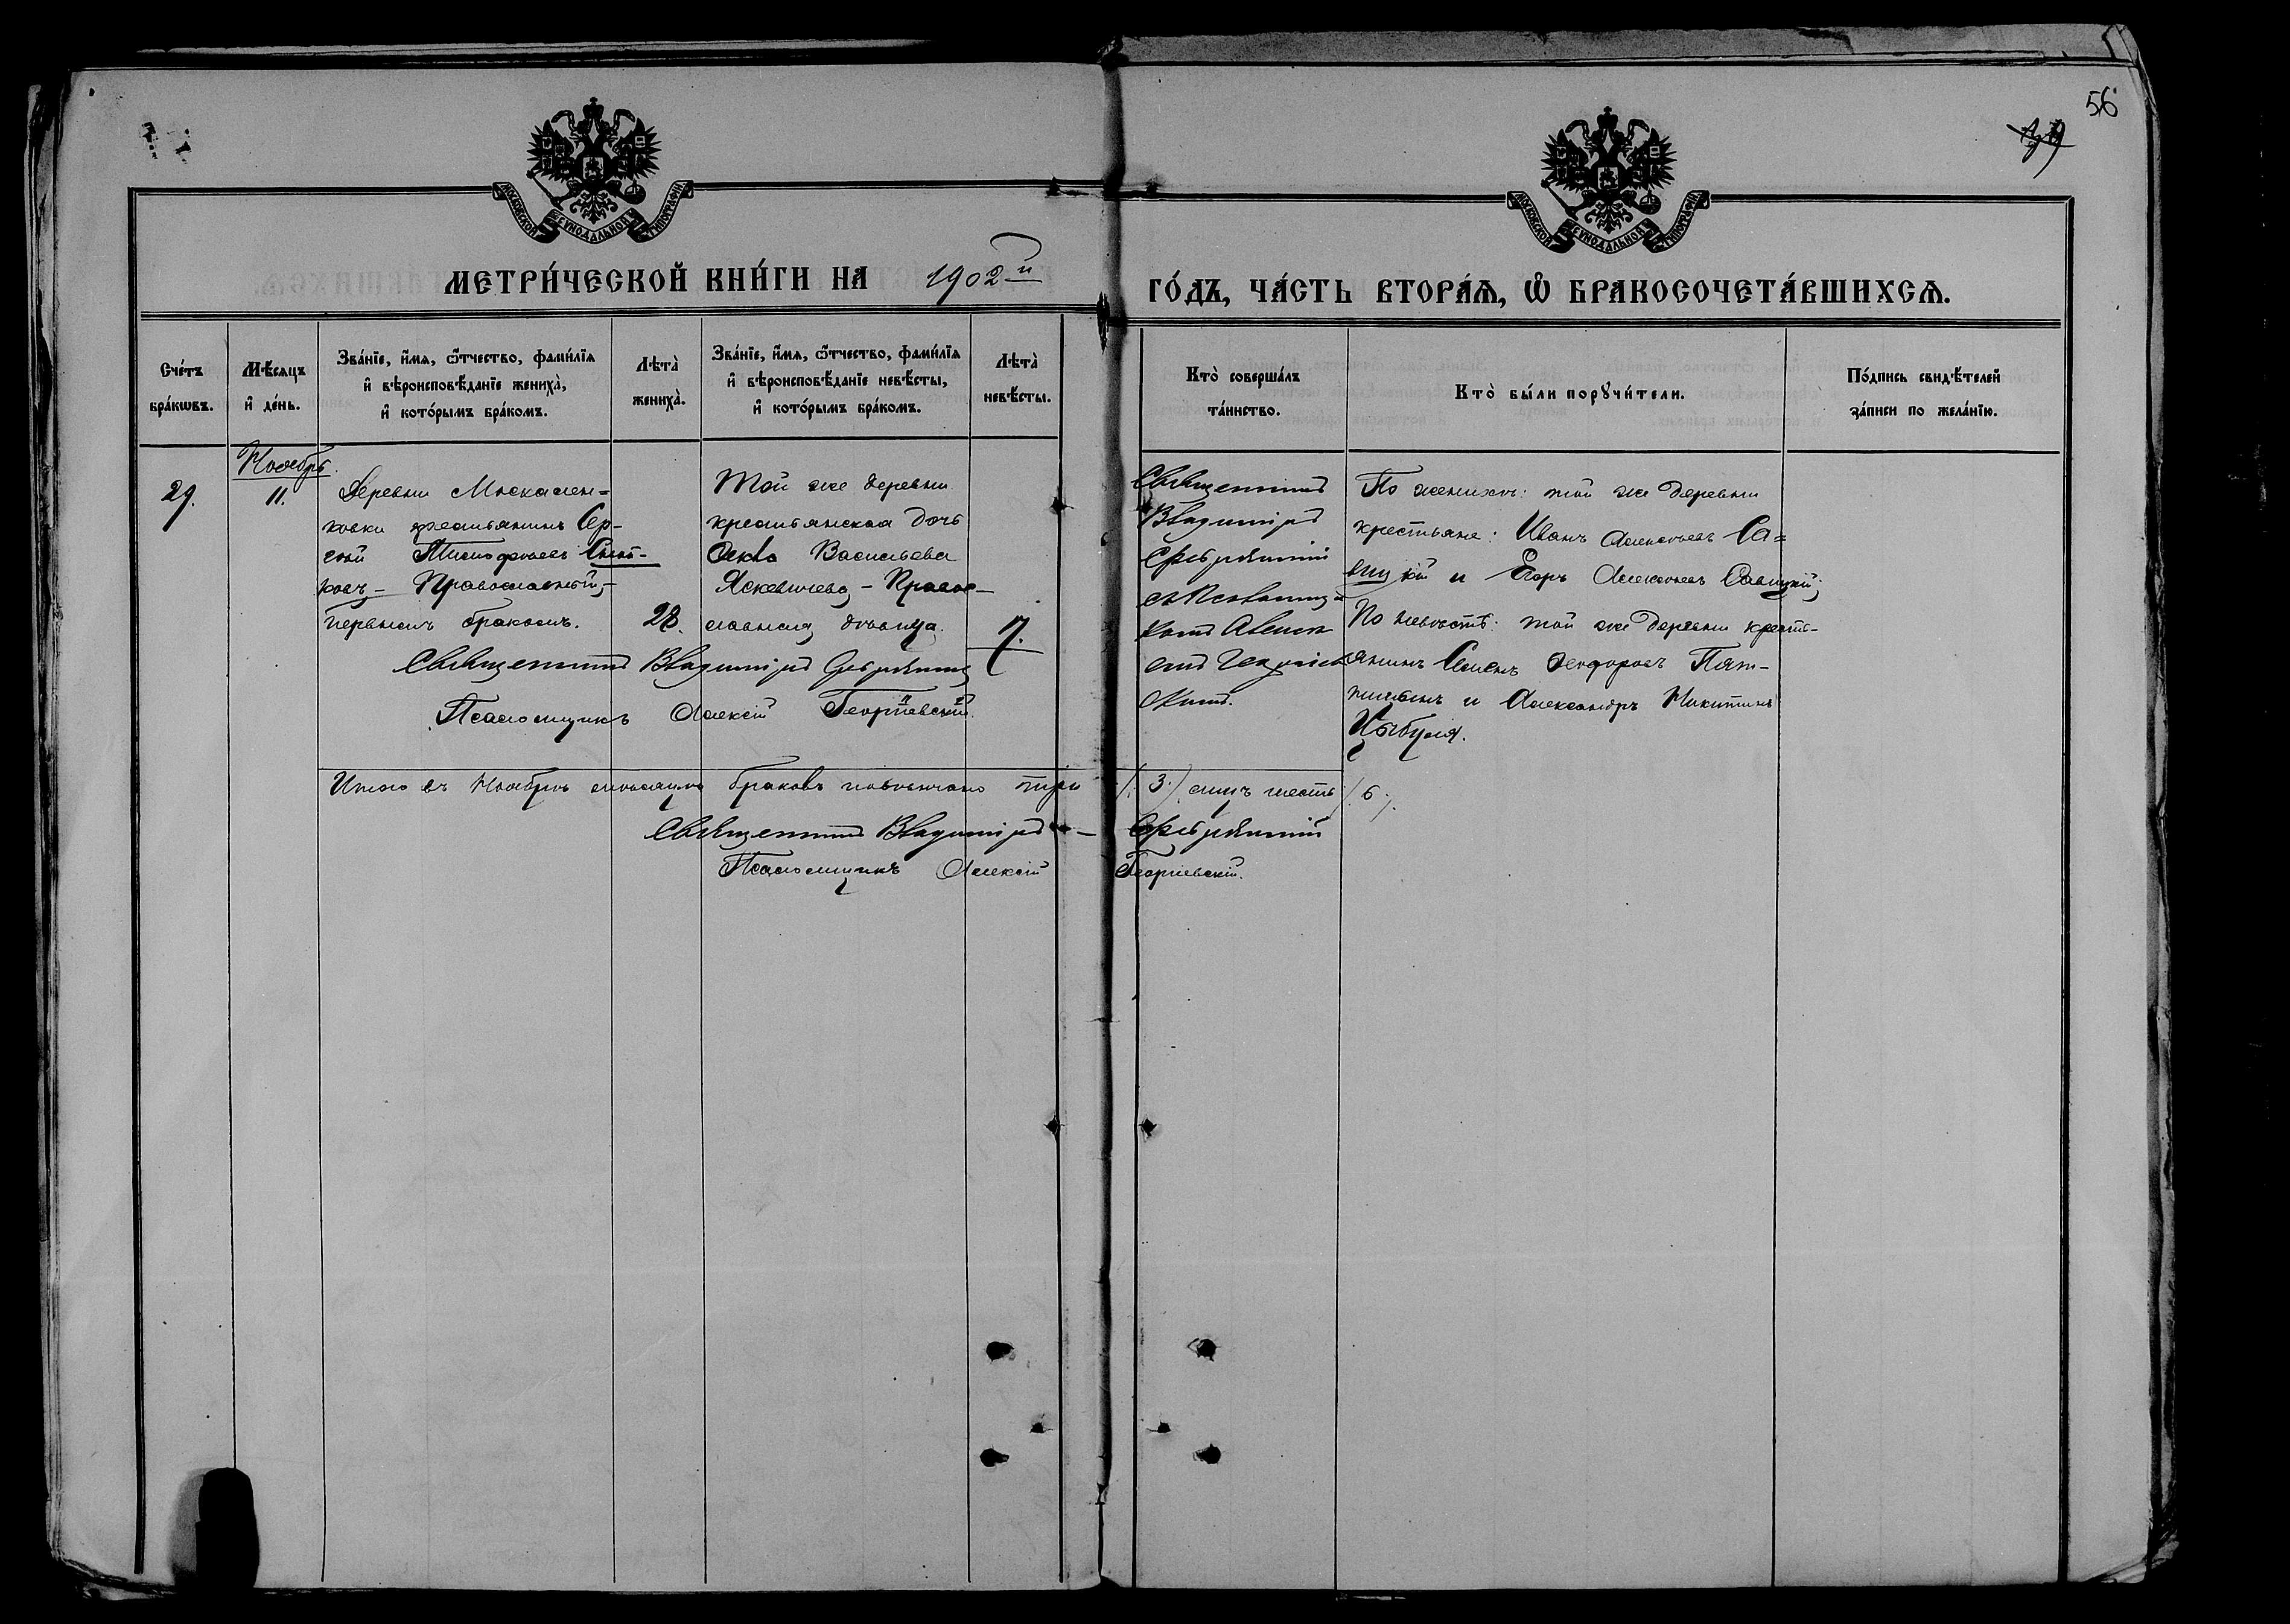 56
МОСКОВСКОЙ СѴНОДАЛЬНОЙ ТИПОГРАФІИ
МОСКОВСКОЙ СѴНОДАЛЬНОЙ ТИПОГРАФІИ
МЕТРИ́ЧЕСКОЙ КНИ́ГИ НА 1902й
ГО́ДЪ, ЧА́СТЬ ВТОРА́Ѧ, Ѽ БРАКОСОЧЕТА́ВШИХСѦ.
Сче́тъ
бра́кѡвъ.
Мѣ́сяцъ
и҆ де́нь.
Зва́нїе, и҆́мѧ, ѻ҆́тчество, фами́лїѧ
и҆ вѣроисповѣ́данїе женихà,
и҆ кото́рымъ бра́комъ.
Лѣта̀
женихà.
Зва́нїе, и҆́мѧ, ѻ҆́тчество, фами́лїѧ
и҆ вѣроисповѣ́данїе невѣ́сты,
и҆ кото́рымъ бра́комъ.
Лѣта̀
невѣ́сты.
Кто̀ соверша́лъ
та́инство.
Кто̀ бы́ли порꙋчи́тели.
По́дпись свидѣ́телей
за́писи по жела́нїю.
29.
Ноябрь.
11.
Деревни Москален-
ковки крестьянинъ Сер-
гѣй
ковъ – Православный,
первымъ бракомъ.
28.
Той же деревни
крестьянская дочь
Васильева
Яскевичева – Право-
славная дѣвица.
17.
Священникъ
Владиміръ
Серебрянскій
съ Псаломщи
комъ Алексѣ
емъ Георгіев
скимъ.
По женихѣ: той же деревни
крестьяне: Иванъ Алексѣевъ Са-
вицкій и Егоръ Алексѣевъ Савицкій;
По невѣстѣ: той же деревни кресть-
янинъ Семенъ Ѳеодоровъ
и Александръ Никитинъ
Цыбуля.
Священникъ Владиміръ Серебрянскій
Псаломщикъ Алексій Георгіевскій.
Итого въ Ноябрѣ мѣсяцѣ браковъ повѣнчано три /3./ лицъ шесть /6/.
Священникъ Владиміръ Серебрянскій
Псаломщикъ Алексій Георгіевскій.